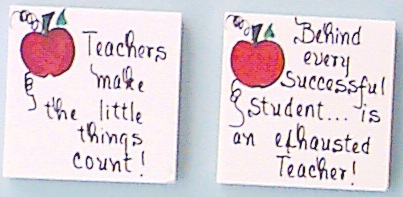 Teachers
make
the little
things
count!
Behind
every
Successful
Student... is
an exhausted
Teacher!